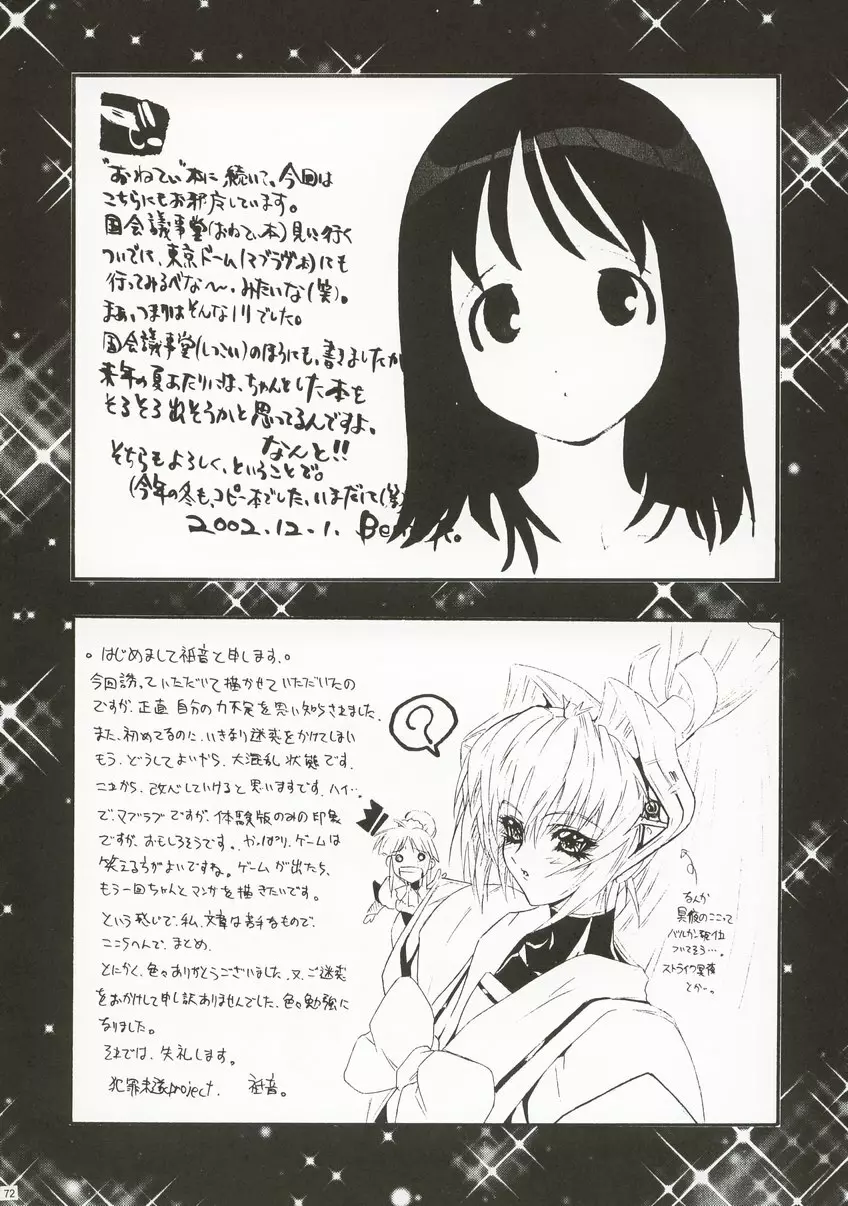 "おねてぃ"本に続いて、今回は
こちらにもお邪魔しています。
国会議事堂(おねてぃ本)見に行く
ついでに、東京ドーム(マブラヴ本)にも
行ってみるべな〜、みたいな(笑)。
まぁ、つまりはそんなノリでした。
国会議事堂(しつこい)のほうにも、書きましたが
来年の夏あたりには、ちゃんとした本を
そろそろ出そうかと思ってるんですよ。
なんと!!
そちらもよろしく、ということで。
(今年の冬も、コピー本でした、いまだに(笑)
2002.12.1.
。はじめまして祗音と申します。
今回誘っていただいて描かせていただいたの
ですが、正直自分の力不足を思い知らされました。
また、初めてるのに、いきなり迷惑をかけてしまい
もう、どうしてよいやら、大混乱状態です。
これから、改心していけると思いますです、ハイ…
で、マブラブですが、体験版のみの印象
ですが、おもしろそうです。やっぱり、ゲームは
笑える方がよいですね。ゲームが出たら、
もう一回ちゃんとマンガを描きたいです。
という感じで、私、文章は苦手なもので、
ここらへんで、まとめ。
とにかく、色々ありがとうございました。又、ご迷惑
をおかけして申し訳ありませんでした、色々勉強に
なりました。
それでは、失礼します。
犯罪未遂project. 祗音。
?
なんか
冥夜のここって
バルカン砲位
ついてそう…。
ストライク冥夜
とか〜。
72